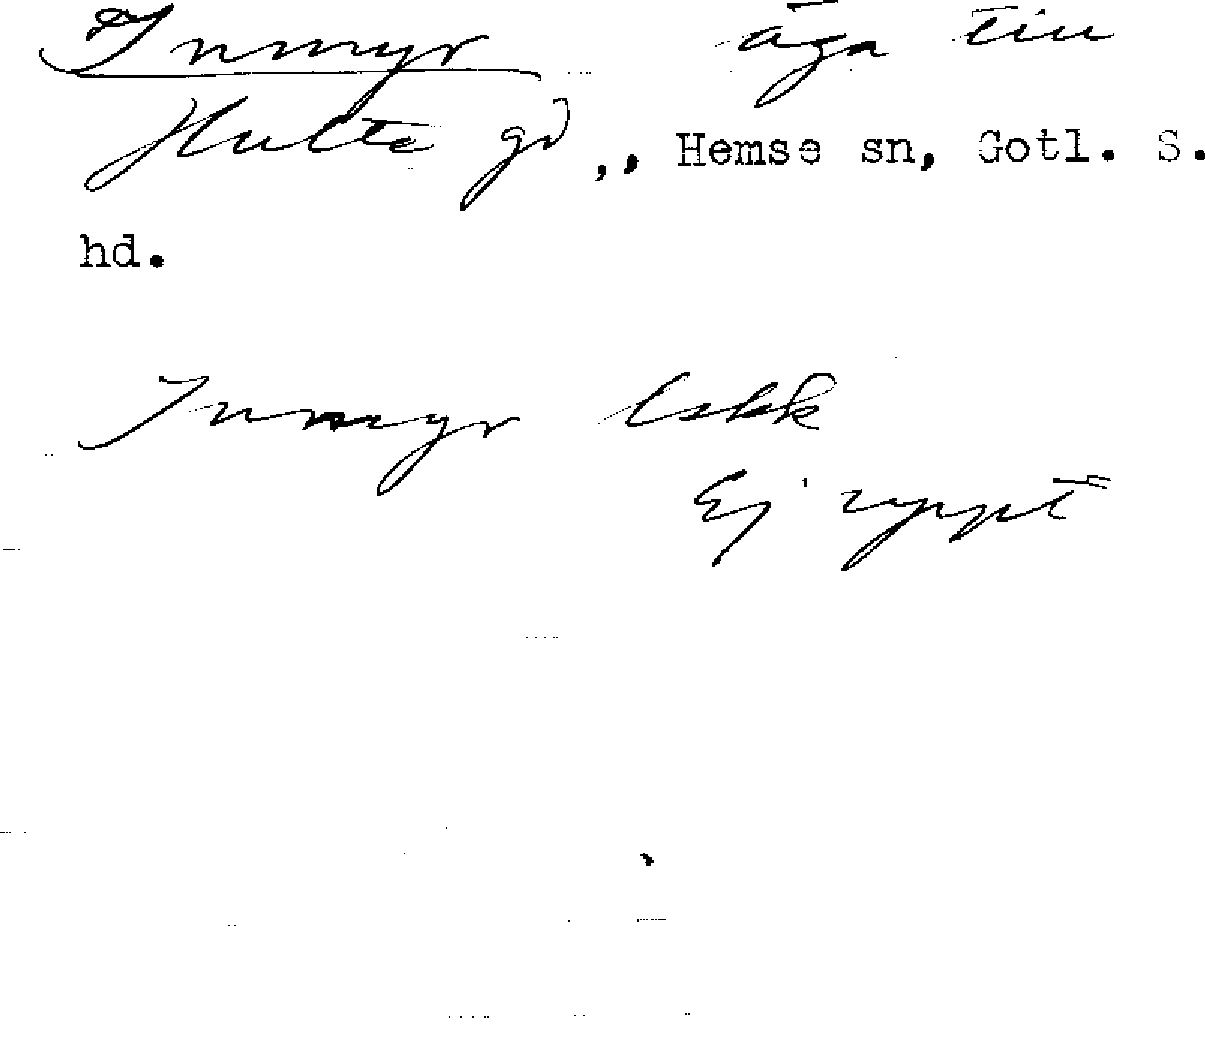 Inmyr äga till
Hulte gd,, Hemse sn, Gotl. S.
hd.
Inmyr Lskk
Ej rypt